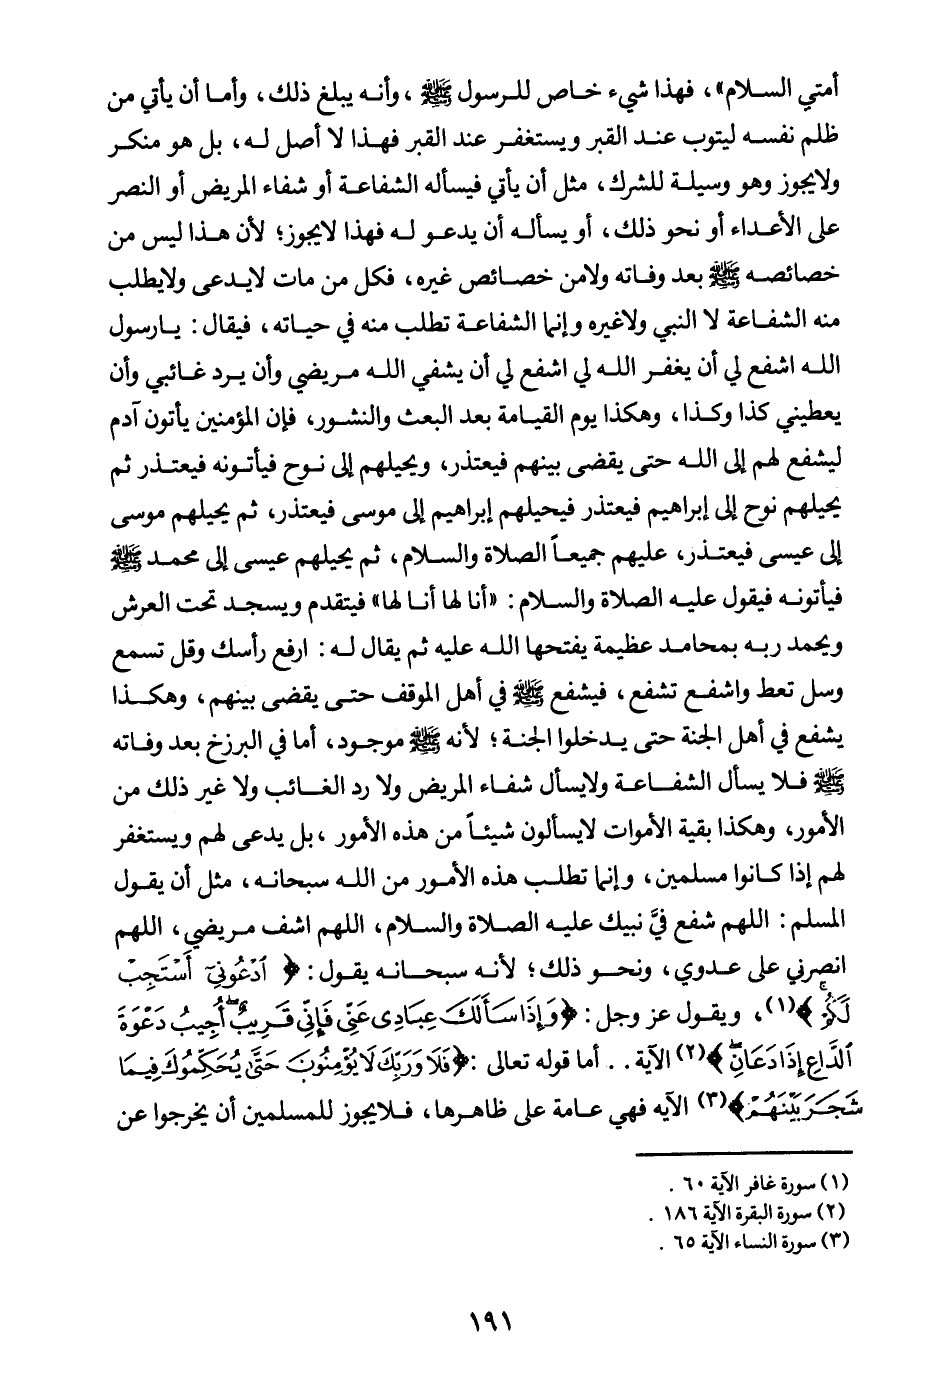 أمتي السلام»، فهذا شيء خاص للرسول ﷺ ،وأنه يبلغ ذلك، وأما أن يأتي من
ظلم نفسه ليتوب عند القبر ويستغفر عند القبر فهذا لا أصل له، بل هو منكر
ولايجوز وهو وسيلة للشرك، مثل أن يأتي فيسأله الشفاعة أو شفاء المريض أو النصر
على الأعداء أو نحو ذلك، أو يسأله أن يدعو له فهذا لايجوز؛ لأن هذا ليس من
خصائصه ﷺ بعد وفاته ولامن خصائص غيره، فكل من مات لايدعى ولايطلب
منه الشفاعة لا النبي ولاغيره وإنما الشفاعة تطلب منه في حياته، فيقال: يارسول
الله اشفع لي أن يغفر الله لي اشفع لي أن يشفي الله مريضي وأن يرد غائبي وأن
يعطيني كذا وكذا، وهكذا يوم القيامة بعد البعث والنشور، فإن المؤمنين يأتون آدم
ليشفع لهم إلى الله حتى يقضى بينهم فيعتذر، ويحيلهم إلى نوح فيأتونه فيعتذر ثم
يحيلهم نوح إلى إبراهيم فيعتذر فيحيلهم إبراهيم إلى موسى فيعتذر، ثم يحيلهم موسى
إلى عيسى فيعتذر، عليهم جميعاً الصلاة والسلام، ثم يحيلهم عيسى إلى محمد ﷺ
فيأتونه فيقول عليه الصلاة والسلام: «أنا لها أنا لها» فيتقدم ويسجد تحت العرش
ويحمد ربه بمحامد عظيمة يفتحها الله عليه ثم يقال له: ارفع رأسك وقل تسمع
وسل تعط واشفع تشفع، فيشفع ﷺ في أهل الموقف حتى يقضى بينهم، وهكذا
يشفع في أهل الجنة حتى يدخلوا الجنة؛ لأنه ﷺ موجود، أما في البرزخ بعد وفاته
ﷺ فلا يسأل الشفاعة ولايسأل شفاء المريض ولا رد الغائب ولا غير ذلك من
الأمور، وهكذا بقية الأموات لايسألون شيئاً من هذه الأمور ،بل يدعى لهم ويستغفر
لهم إذا كانوا مسلمين، وإنما تطلب هذه الأمور من الله سبحانه، مثل أن يقول
المسلم: اللهم شفع فيَّ نبيك عليه الصلاة والسلام، اللهم اشف مريضي، اللهم
انصرني على عدوي، ونحو ذلك؛ لأنه سبحانه يقول: ﴿ ٱدْعُونِىٓ أَسْتَجِبْ
لَكُمْ ﴾(١)، ويقول عز وجل: ﴿وَإِذَا سَأَلَكَ عِبَادِى عَنِّى فَإِنِّى قَرِيبٌ أُجِيبُ دَعْوَةَ
ٱلدَّاعِ إِذَا دَعَانِ ﴾(٢) الآية. . أما قوله تعالى :﴿فَلَا وَرَبِّكَ لَا يُؤْمِنُونَ حَتَّىٰ يُحَكِّمُوكَ فِيمَا
شَجَرَ بَيْنَهُمْ﴾(٣) الآيه فهي عامة على ظاهرها، فلايجوز للمسلمين أن يخرجوا عن
(١) سورة غافر الآية ٦٠ .
(٢) سورة البقرة الآية ١٨٦ .
(٣) سورة النساء الآية ٦٥ .
١٩١